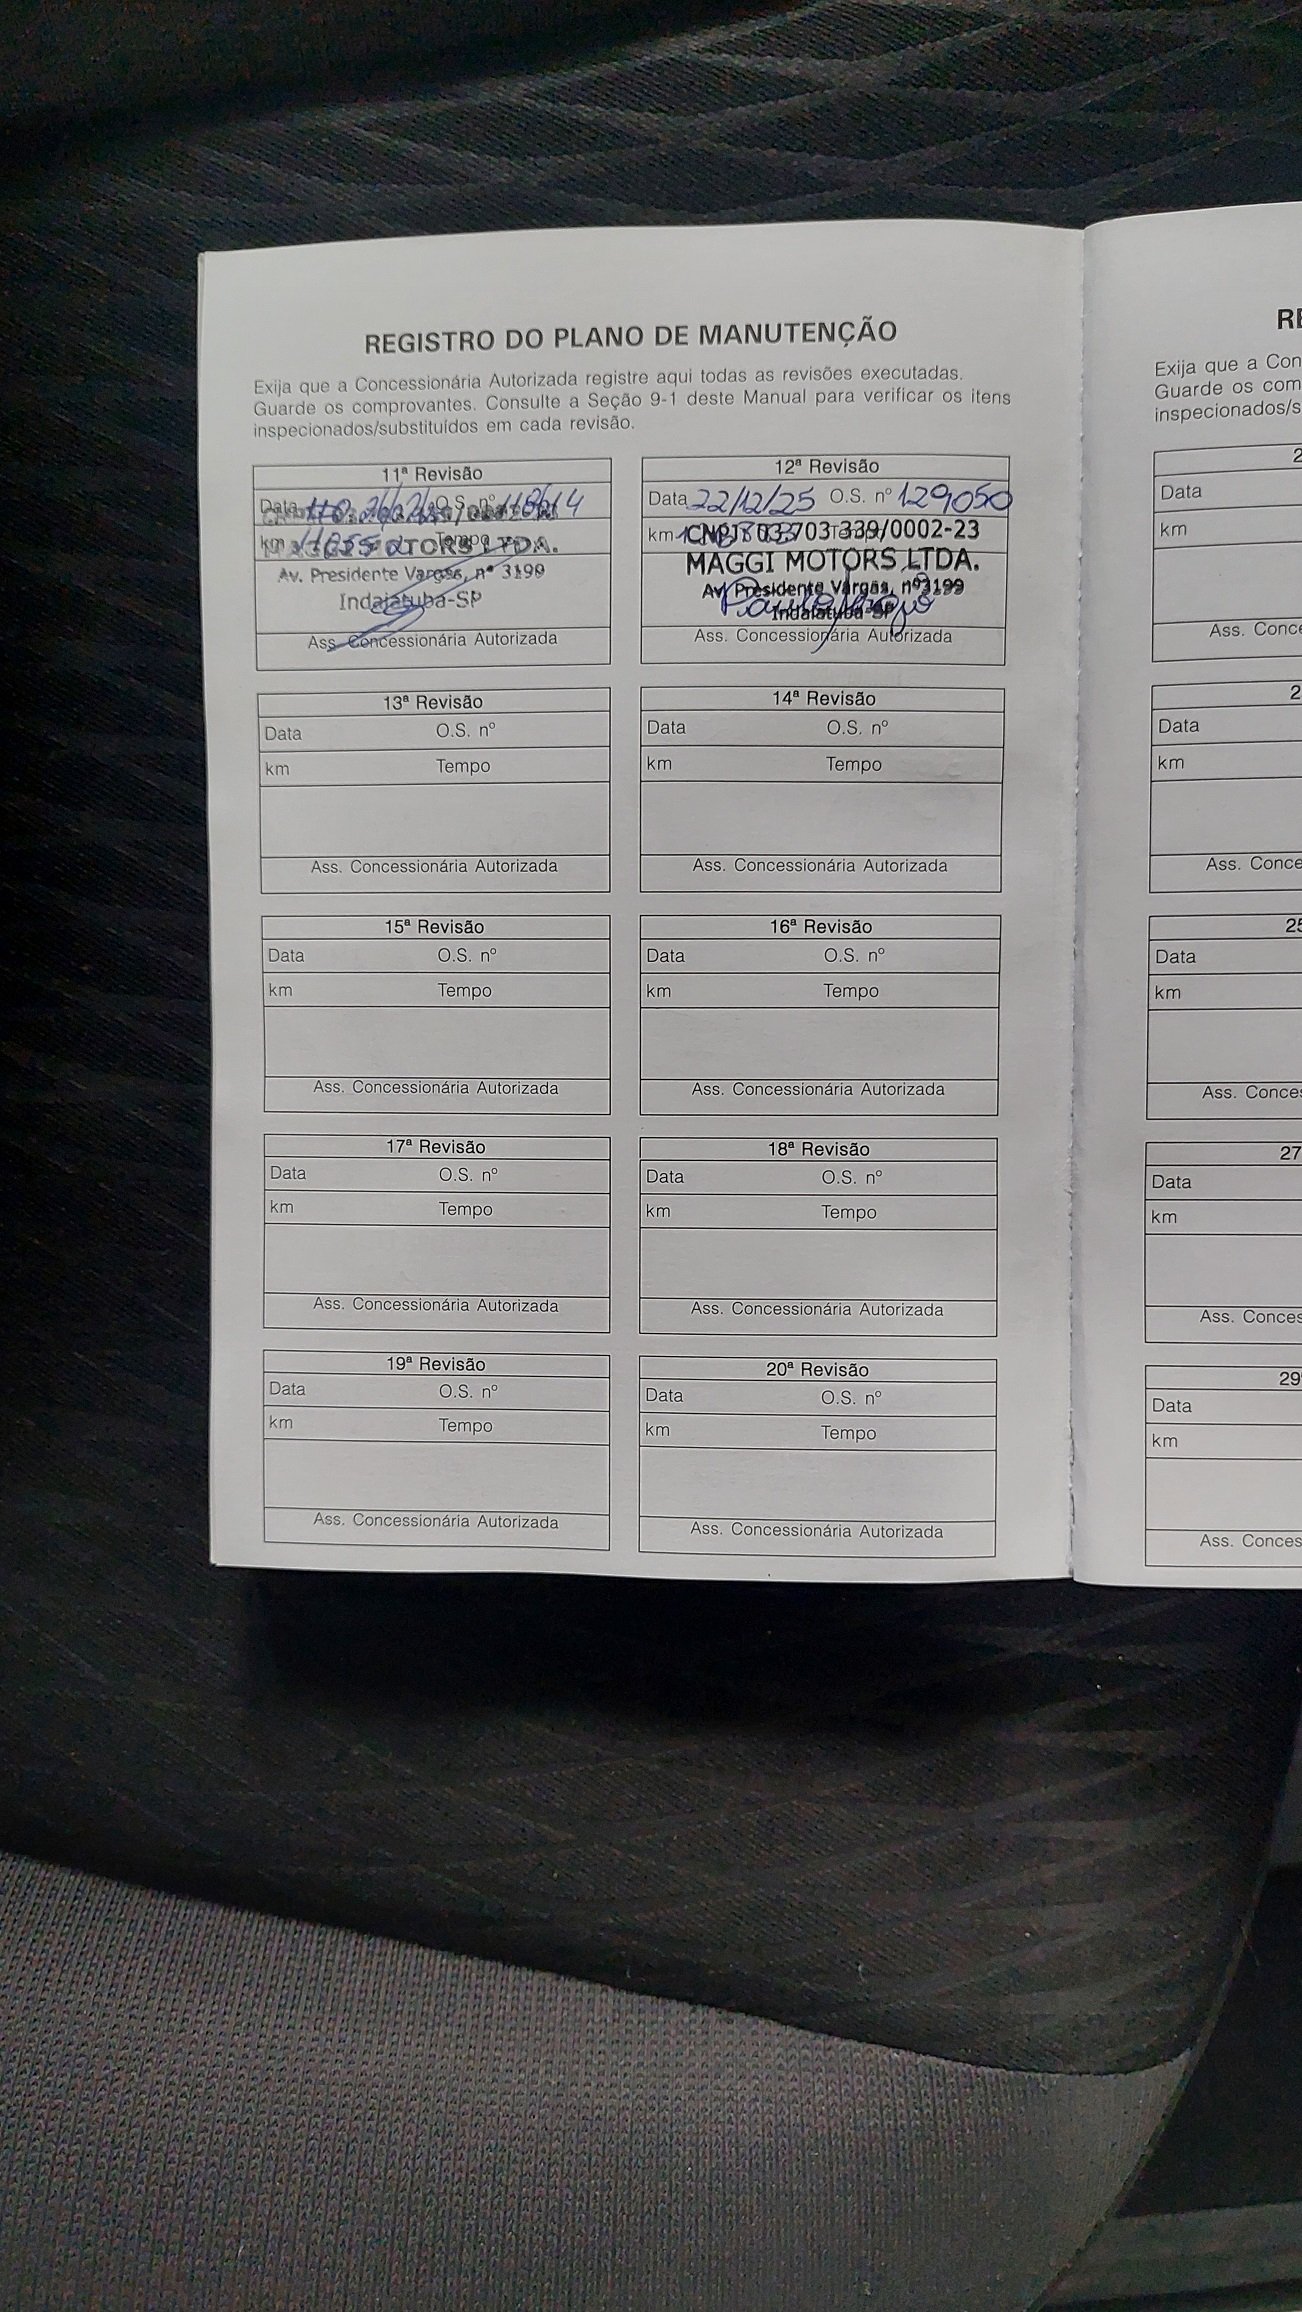 REGISTRO DO PLANO DE MANUTENÇÃO
Exija que a Concessionária Autorizada registre aqui todas as revisões executadas.
Guarde os comprovantes. Consulte a Seção 9-1 deste Manual para verificar os itens
inspecionados/substituídos em cada revisão.
11ª Revisão
Data O.S. nº
km Tempo
MOTORS LTDA.
Av. Presidente Vargas, nº 3199
Indaiatuba-SP
Ass. Concessionária Autorizada
12ª Revisão
Data 22/12/25 O.S. nº 129050
km
CNPJ: 03.703.339/0002-23
MAGGI MOTORS LTDA.
Av. Presidente Vargas, nº3199
Indaiatuba-SP
Ass. Concessionária Autorizada
13ª Revisão
Data O.S. nº
km Tempo
Ass. Concessionária Autorizada
14ª Revisão
Data O.S. nº
km Tempo
Ass. Concessionária Autorizada
15ª Revisão
Data O.S. nº
km Tempo
Ass. Concessionária Autorizada
16ª Revisão
Data O.S. nº
km Tempo
Ass. Concessionária Autorizada
17ª Revisão
Data O.S. nº
km Tempo
Ass. Concessionária Autorizada
18ª Revisão
Data O.S. nº
km Tempo
Ass. Concessionária Autorizada
19ª Revisão
Data O.S. nº
km Tempo
Ass. Concessionária Autorizada
20ª Revisão
Data O.S. nº
km Tempo
Ass. Concessionária Autorizada
RE
Exija que a Con
Guarde os com
inspecionados/s
2
Data
km
Ass. Conce
2
Data
km
Ass. Conce
25
Data
km
Ass. Conces
27
Data
km
Ass. Conces
29
Data
km
Ass. Conces